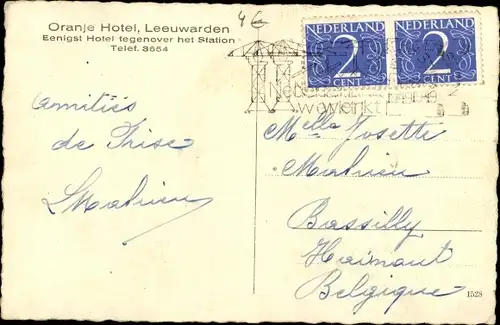 4 €
Oranje Hotel, Leeuwarden
Eenigst Hotel tegenover het Station
Telef. 3654
NEDERLAND NEDERLAND
2 2
CENT CENT
Nederland
werkt
Amitiés
de Frise
Mathieu
Mlle Josette
Mathieu
Bassilly
Hainaut
Belgique
1528